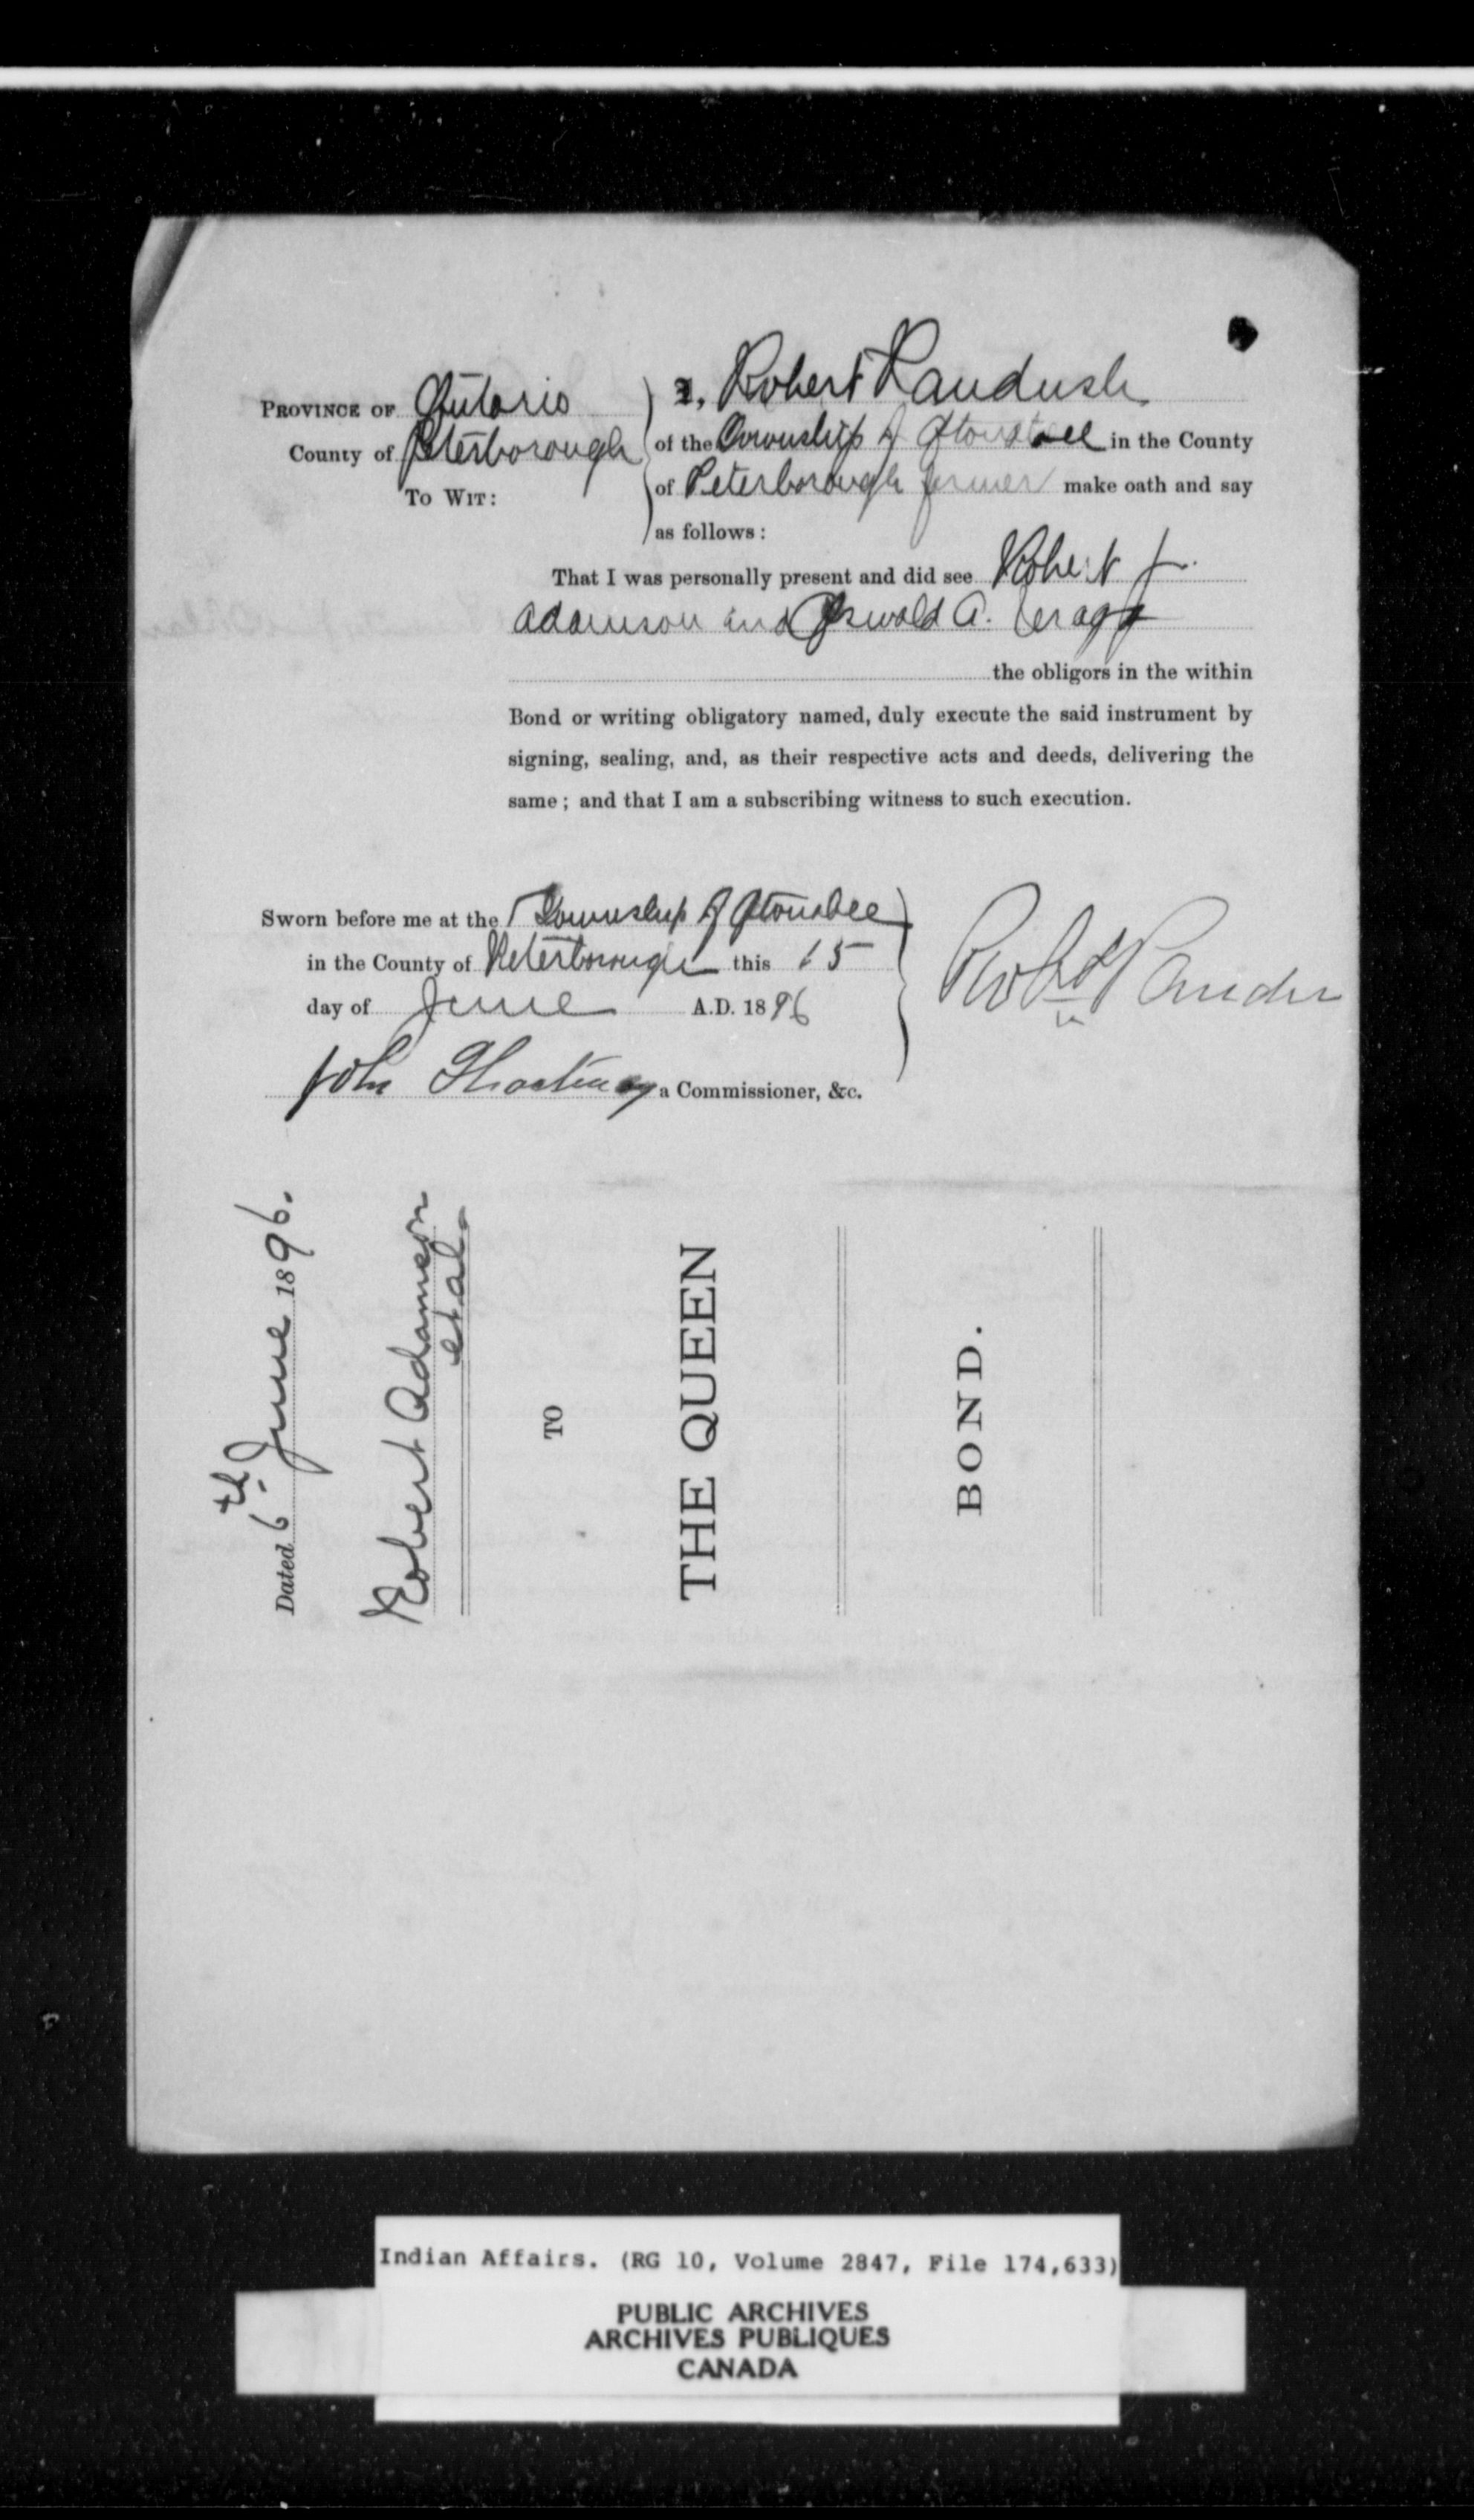 PROVINCE OF Ontario
County of Peterborough
To Wit:
I, Robert
of the Township of Otonabee in the County
of Peterborough farmer make oath and say
as follows:
That I was personally present and did see Robert J.
Adamson and Oswald A.
the obligors in the within
Bond or writing obligatory named, duly execute the said instrument by
signing, sealing, and, as their respective acts and deeds, delivering the
same; and that I am a subscribing witness to such execution.
Sworn before me at the Township of Otonabee
in the County of Peterborough this 15
day of June A.D. 1896
John a Commissioner, &c.
Robt
Dated 6th June 1896.
Robert Adamson
et al.
TO
THE QUEEN
BOND.
Indian Affairs. (RG 10, Volume 2847, File 174,633)
PUBLIC ARCHIVES
ARCHIVES PUBLIQUES
CANADA